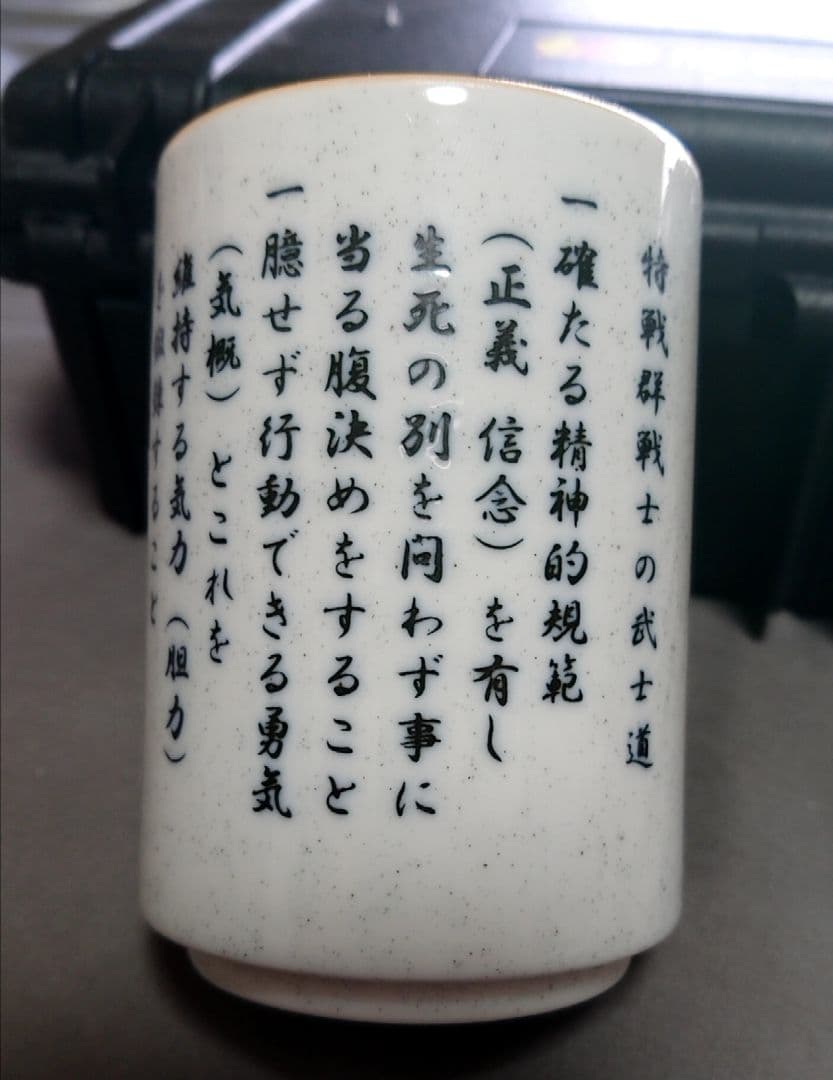 特戦群戦士の武士道
一確たる精神的規範
(正義 信念)を有し
生死の別を問わず事に
当る腹決めをすること
一臆せず行動できる勇気
(気概)とこれを
維持する気力(胆力)
を鍛錬すること